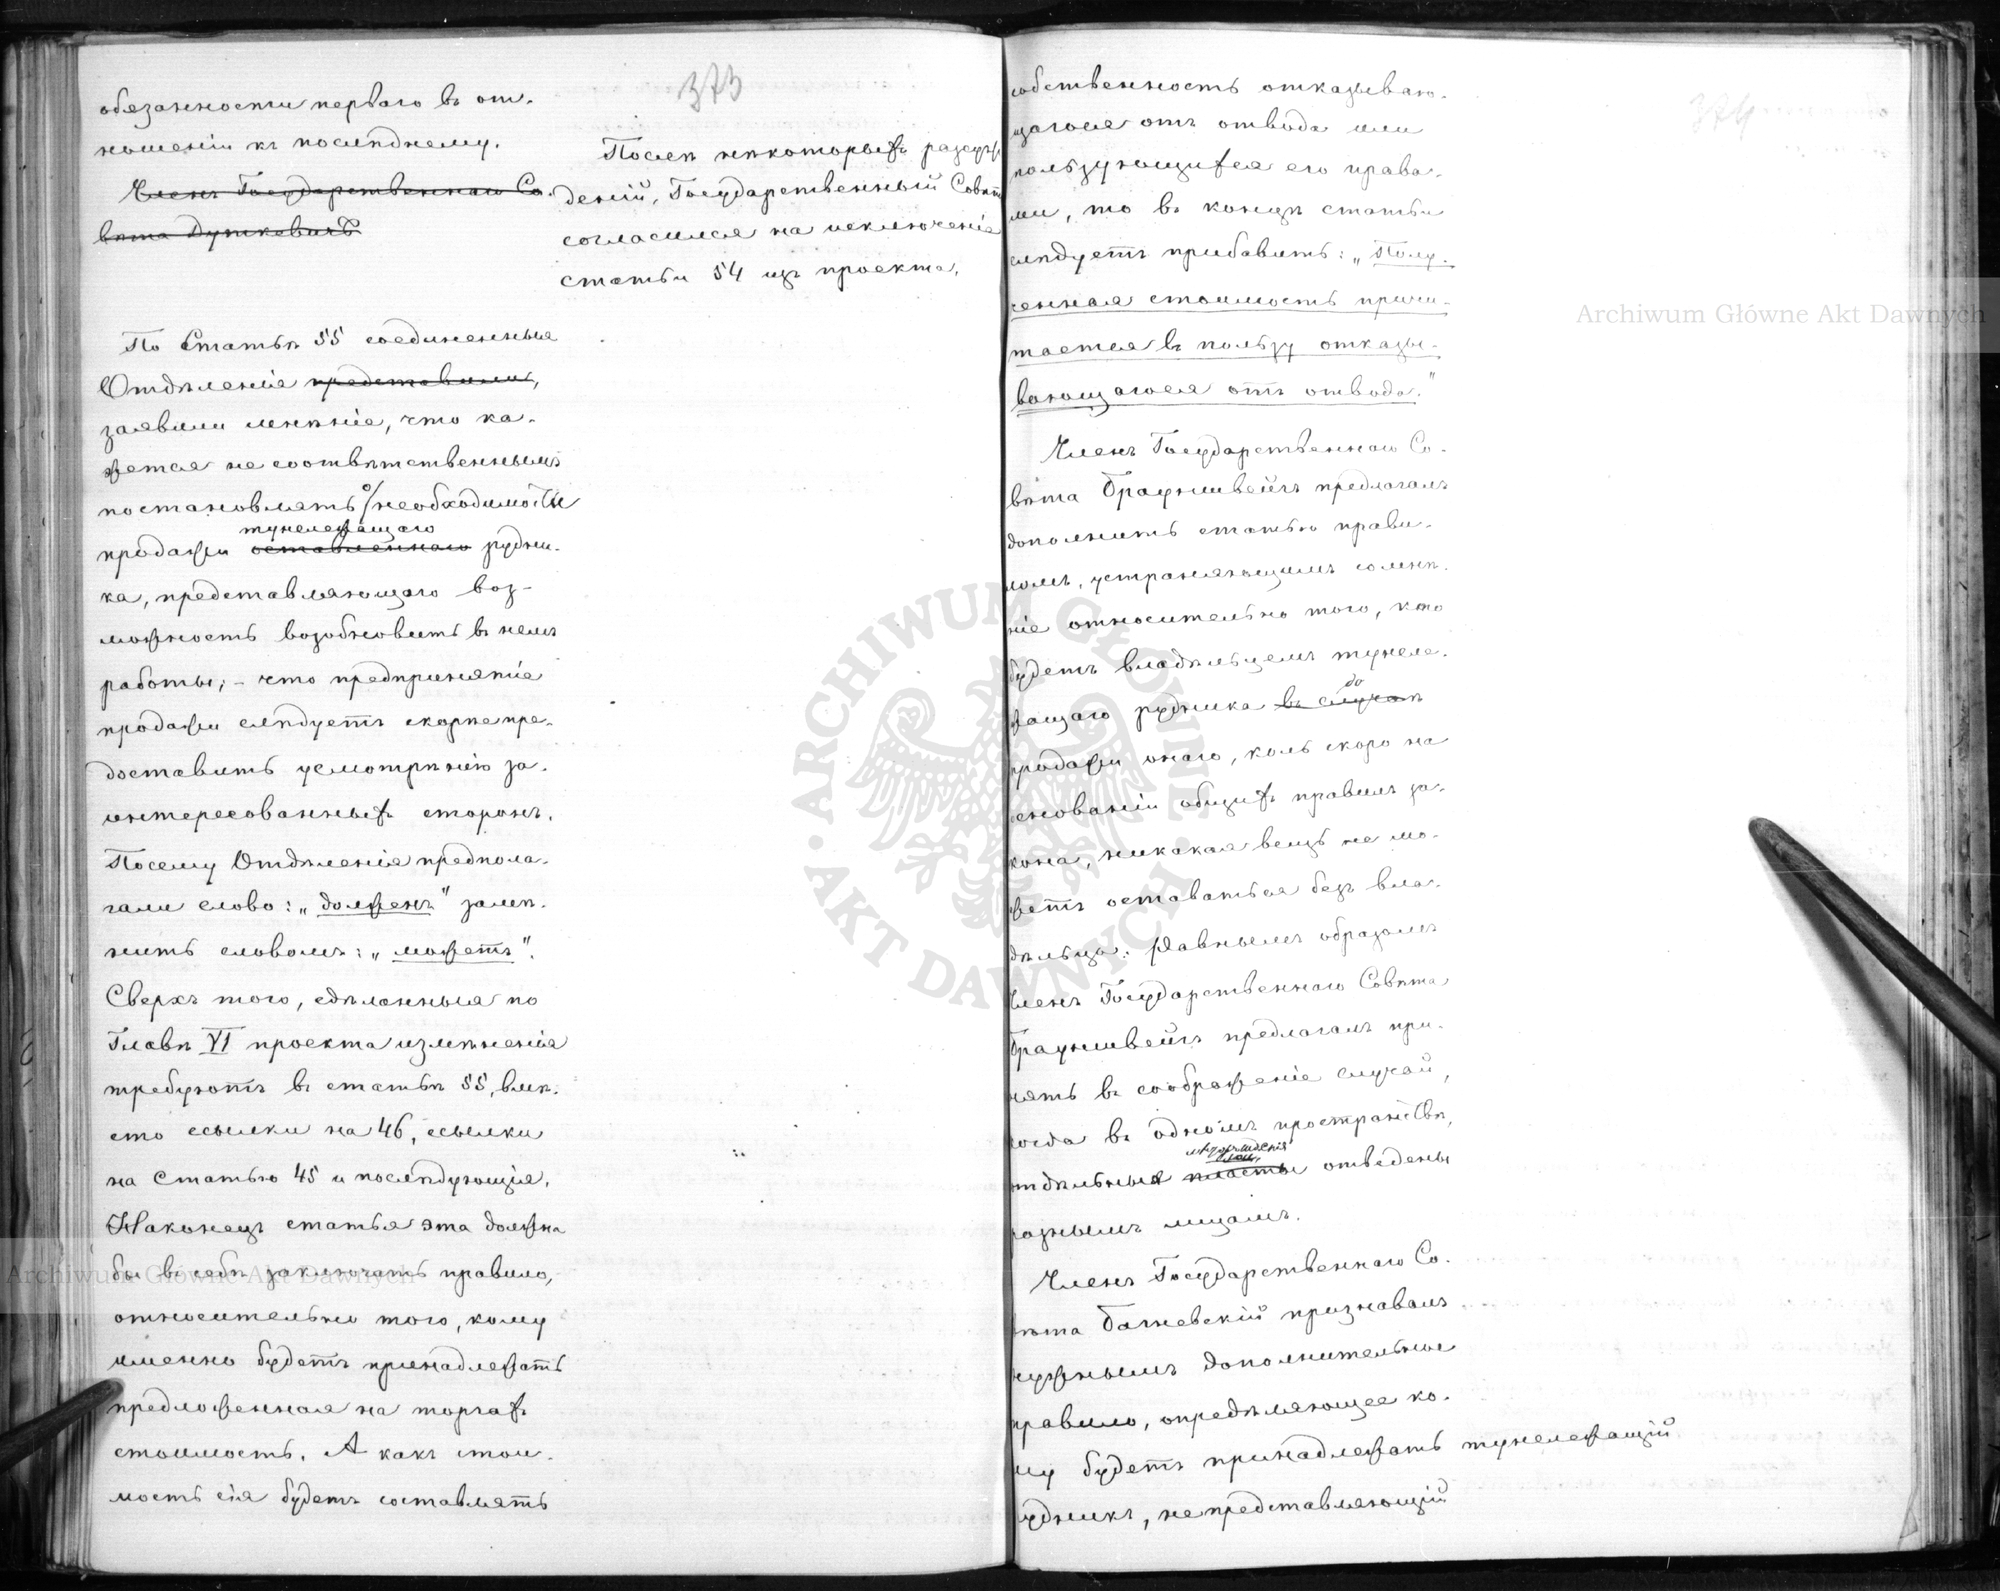 373
обязанности перваго въ от-
ношеніи къ послѣднему.
Членъ Государственнаго Со-
вѣта Дуткевичъ
Послѣ нѣкоторыхъ разсуж
деній, Государственный Совѣтъ
согласился на исключеніе
статьи 54 изъ проекта.
По Статьѣ 55 соединенныя
Отдѣленія представили,
заявили мнѣніе, что ка-
жется не соотвѣтственнымъ
постановлять о необходимости
тунележащаго
продажи оставленнаго рудни-
ка, представляющаго воз-
можность возобновить въ немъ
работы; - что предпринятіе
продажи слѣдуетъ скорѣе пре-
доставить усмотрѣнію за-
интересованныхъ сторонъ.
Посему Отдѣленія предпола-
гали слово: „долженъ" замѣ-
нить словомъ: „можетъ".
Сверхъ того, сдѣланныя по
Главѣ VI проекта измѣненія
требуютъ въ статьѣ 55, вмѣ-
сто ссылки на 46, ссылки
на Статью 45 и послѣдующія.
Наконецъ статья эта должна
бы въ себѣ заключать правило,
относительно того, кому
именно будетъ принадлежать
предложенная на торгахъ
стоимость. А какъ стои-
мость сія будетъ составлять
374
собственность отказываю-
щагося отъ отвода или
пользующихся его права-
ми, то въ концѣ статьи
слѣдуетъ прибавить: „Полу-
ченная стоимость причи-
тается въ пользу отказы-
вающагося отъ отвода."
Членъ Государственнаго Со-
вѣта Брауншвейгъ предлагалъ
дополнить статью прави-
ломъ, устраняющимъ сомнѣ-
ніе относительно того, кто
будетъ владѣльцемъ тунеле-
до
жащаго рудника въ случаѣ
продажи онаго, коль скоро на
основаніи общихъ правилъ за-
кона, никакая вещь не мо-
жетъ оставаться безъ вла-
дѣльца. Равнымъ образомъ
Членъ Государственнаго Совѣта
Брауншвейгъ предлагалъ при-
нять въ соображеніе случай,
когда въ одномъ пространствѣ,
отдѣльные пласты отведены
разнымъ лицамъ.
Членъ Государственнаго Со-
вѣта Багневскій признавалъ
нужнымъ дополнительное
правило, опредѣляющее ко-
му будетъ принадлежать тунележащій
рудникъ, непредставляющій
Archiwum Główne Akt Dawnych
Archiwum Główne Akt Dawnych
ARCHIWUM GŁÓWNE
AKT DAWNYCH